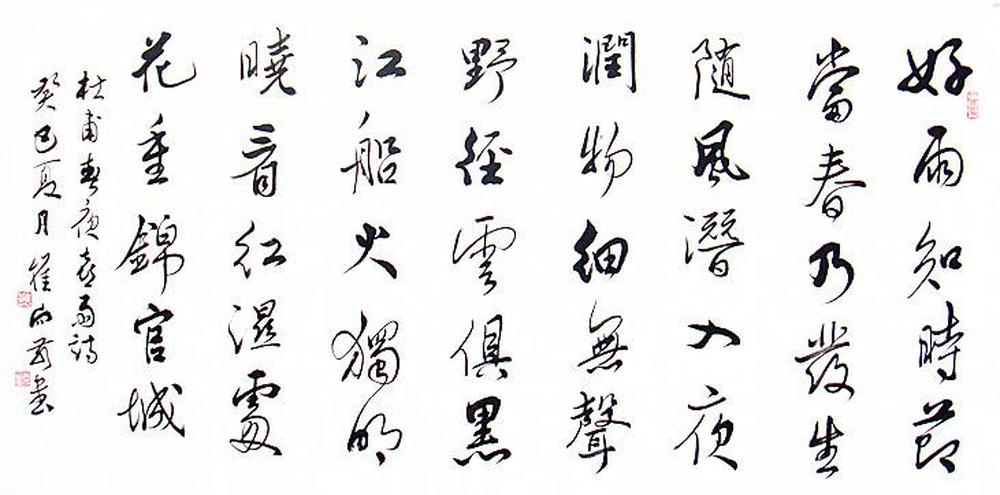 好雨知時節
當春乃發生
隨風潛入夜
潤物細無聲
野徑雲俱黑
江船火獨明
曉看紅濕處
花重錦官城
杜甫春夜喜雨詩
癸巳夏月崔書